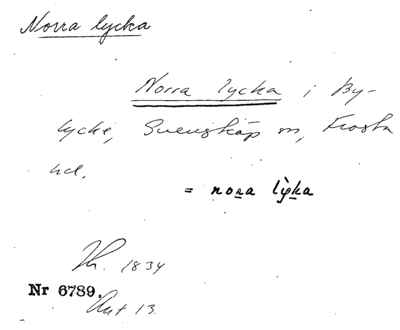 Norra lycka
Norra lycka i By-
lycke, Svensköp sn, Frosta
hd.
= nora lỳka
1834
Nr 6789.
Akt 13.